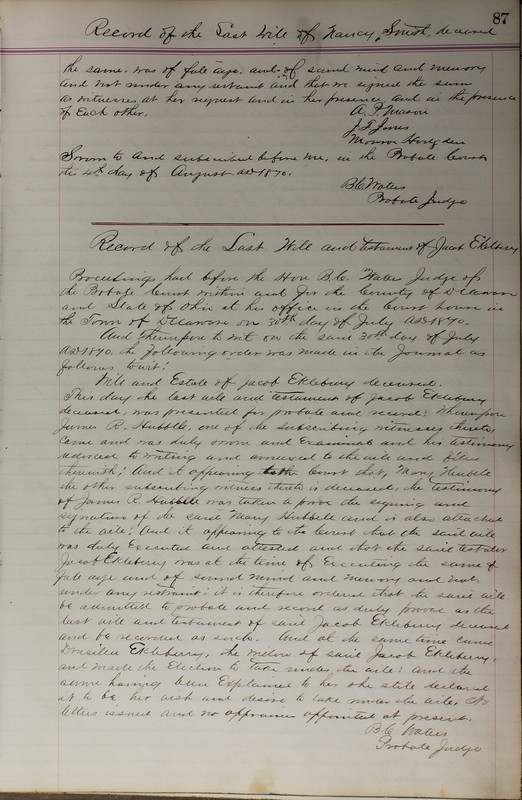 87
Record of the Last Will of Nancy Smith, deceased
the same. was of full age. and of sound mind and memory
and not under any restraint and that we signed the same
as witnesses at her request and in her presence and in the presence
of Each other.
A. F. Mason
J. F. Jones
Monroe
Sworn to and subscribed before me, in the Probate Court
the 4th day of August AD 1870.
B.C. Waters
Probate Judge
Record of the Last Will and testament of Jacob Ekleberry
Proceedings had before the Hon B.C. Waters Judge of
the Probate Court within and for the County of Delaware
and State of Ohio at his office in the Court house in
the Town of Delaware on 30th day of July AD 1870.
And Thereupon to wit on the said 30th day of July
AD 1870. the following order was made in the Journal as
follows to wit:
Will and Estate of Jacob Ekleberry deceased.
This day the last will and testament of Jacob Ekleberry
deceased, was presented for probate and record: Thereupon
James R. Hubble, one of the subscribing witnesses thereto,
came and was duly sworn and Examined and his testimony
reduced to writing and annexed to the will and filed
therewith; And it appearing to the Court that, Mary Hubble
the other subscribing witness thereto is deceased, the testimony
of James R. Hubble was taken to prove the signing and
signature of the said Mary Hubbell and is also attached
to the will; And it appearing to the Court that the said will
was duly Executed and attested and that the said testator
Jacob Ekleberry was at the time of Executing the same of
full age and of sound mind and memory and not
under any restraint; it is therefore ordered that the said will
be admitted to probate and record as duly proven as the
last will and testament of said Jacob Ekleberry deceased
and be recorded as such. And at the same time came
Drusilla Ekleberry, the widow of said Jacob Ekleberry,
and made the Election to take under the will: and the
same having been Explained to her she still declared
it to be her wish and desire to take under the will. No
letters issued and no appraisers appointed at present.
B.C. Waters
Probate Judge